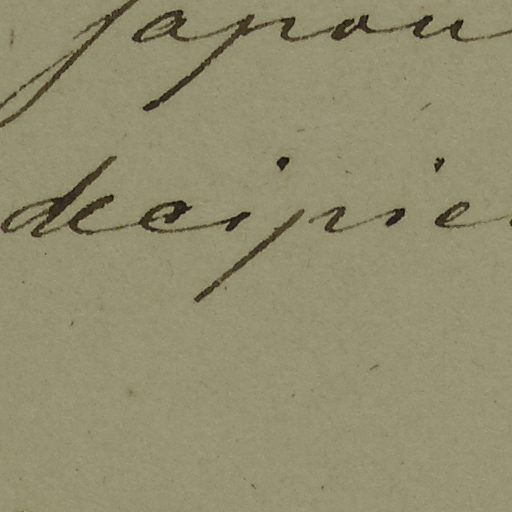 Japon
decipie